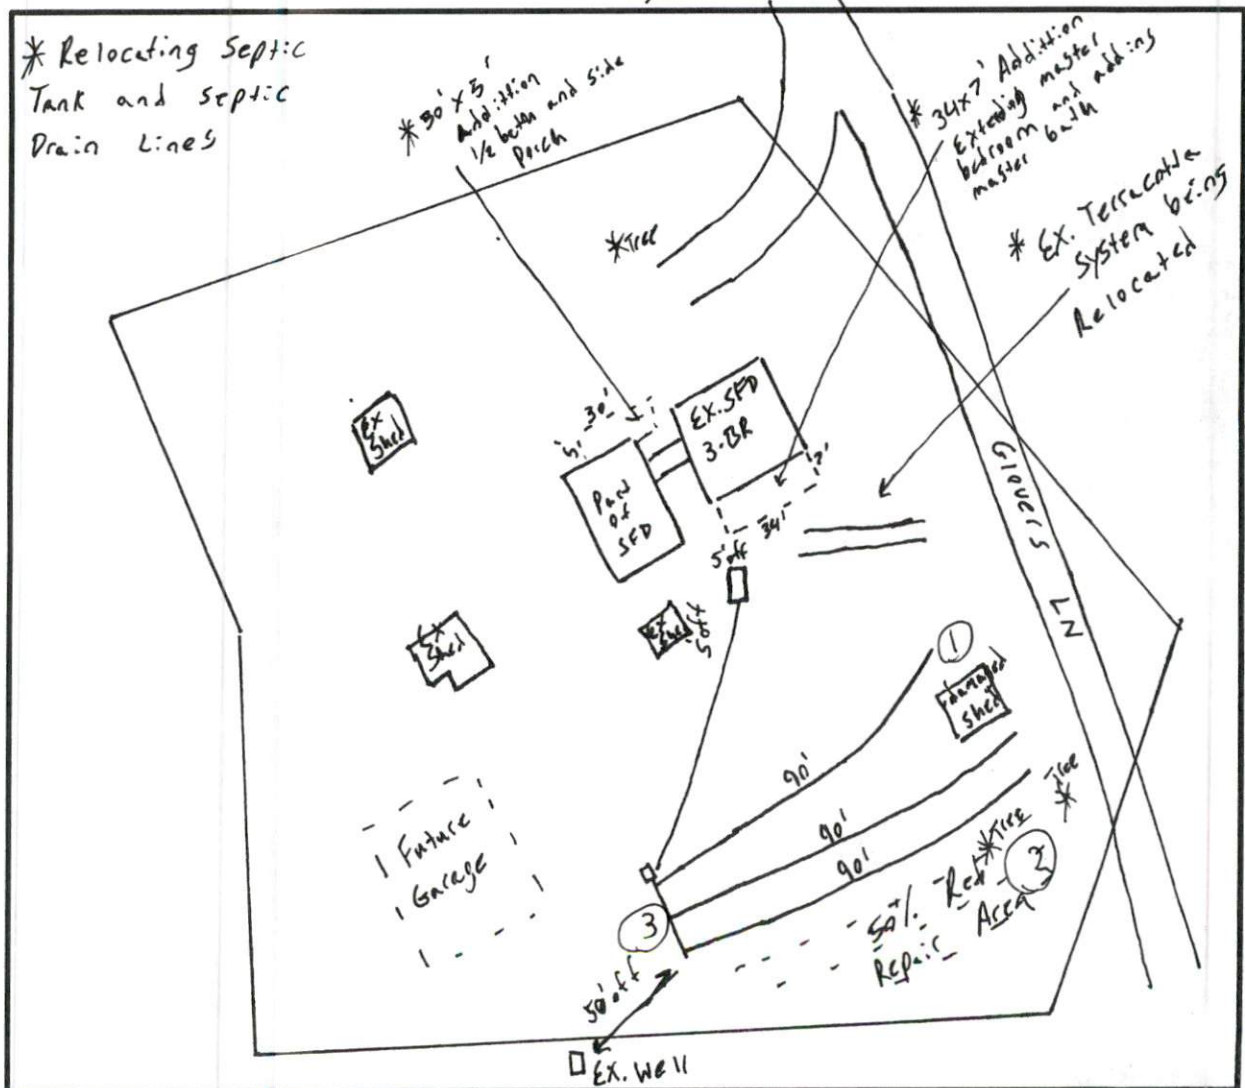 * Relocating Septic
Tank and Septic
Drain Lines
* 30' x 5'
Addittion
1/2 bath and side
porch
* 34x7' Addittion
Extending master
bedroom and adding
master bath
* Ex. Terracotta
System being
Relocated
*Tree
Ex
Shed
5'
30'
Ex. SFD
3-BR
7'
Part
of
SFD
34'
5' off
Ex
Shed
Ex
Shed
Glovers LN
1
damaged
shed
90'
90'
90'
Tree
*
*Tree
Future
Garage
3
50%
Red
Repair
Area
2
50' off
Ex. Well